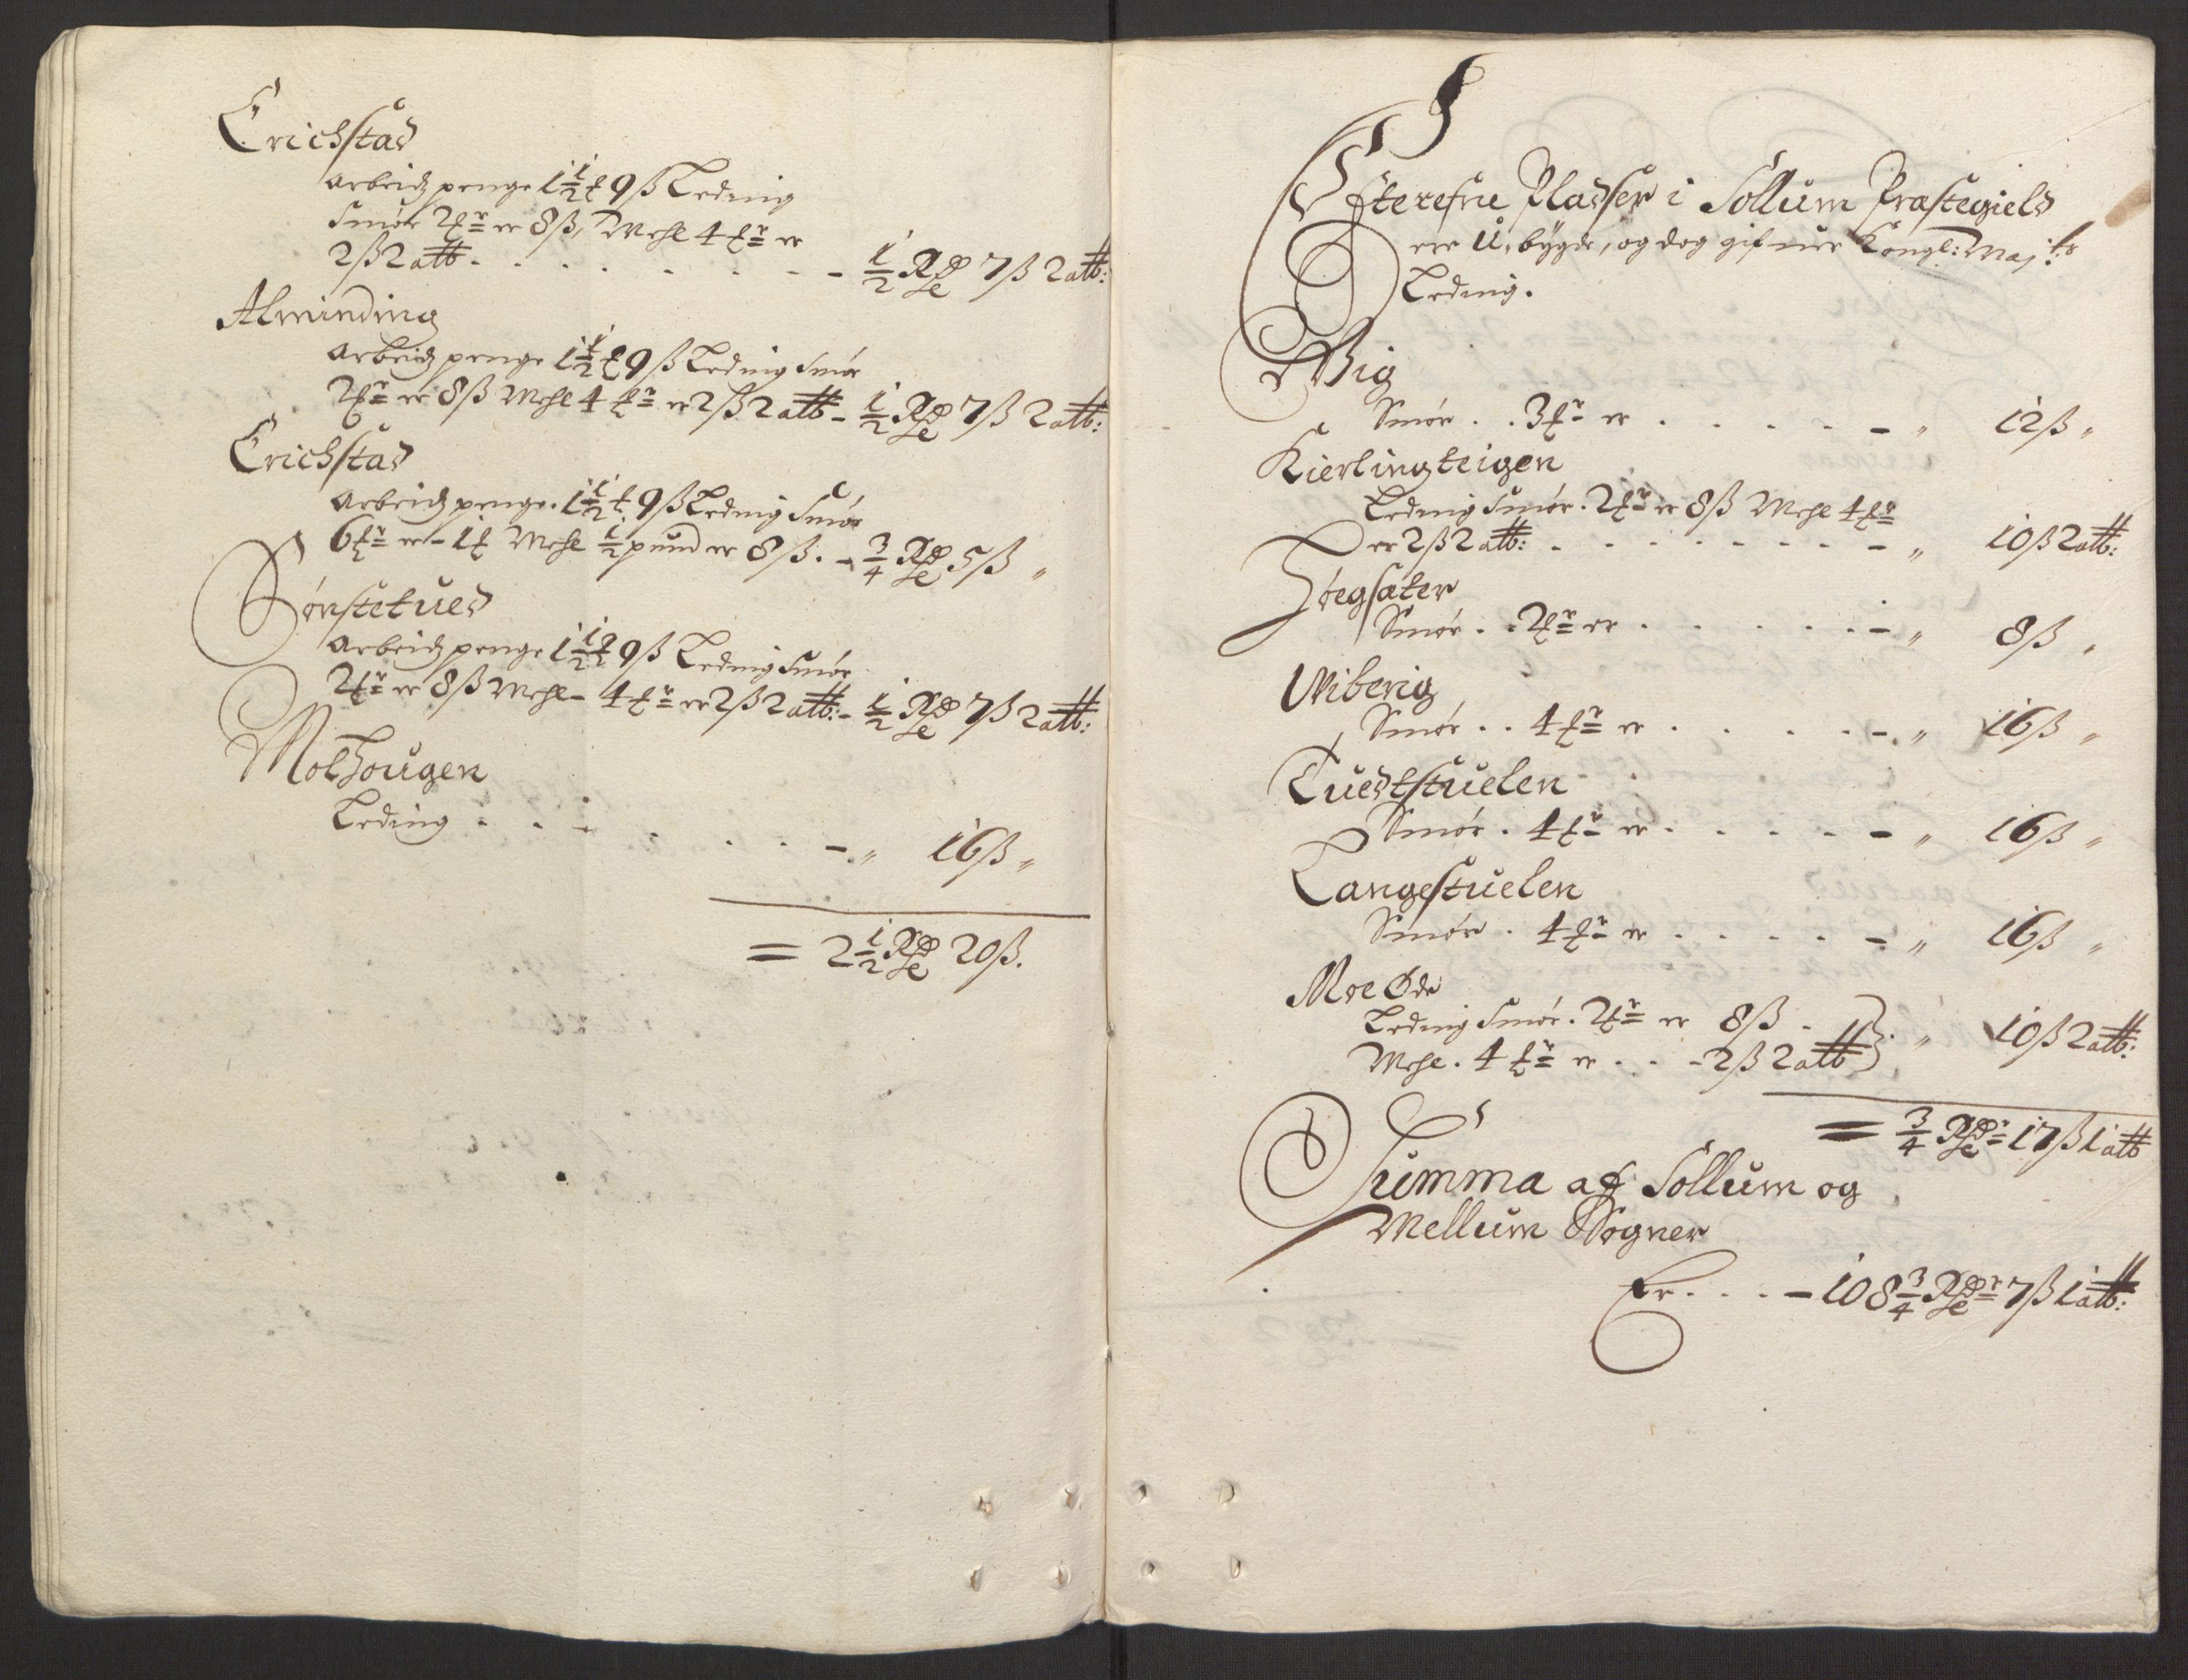 Erichstad
arbeidzpenge 1½ t 9 ß Leding
smør 2 t̲r̲ er 8 ß, Mehl 4 t̲r̲ er
2 ß 2 alb . . . . . . . . . - ½ Rdr 7 ß 2 alb:
Alminding
arbeidzpenge 1½ t 9 ß Leding smør
2 t̲r̲ er 8 ß Mehl 4 t̲r̲ er 2 ß 2 alb - ½ Rdr 7 ß 2 alb:
Erichstad
arbeidzpenge. 1½ t 9 ß Leding smør
6 t̲r̲ er - 1 t Mehl ½ pund er 8 ß. - ¾ Rdr 5 ß "
Sønstetued
arbeidzpenge 1½ t 9 ß Leding smør
2 t̲r̲ er 8 ß Mehl - 4 t̲r̲ er 2 ß 2 alb: - ½ Rdr 7 ß 2 alb:
Molhougen
Leding . . . . . . - " 16 ß "
= 2½ Rdr 20 ß.
Efterefne Pladser i Sollum Præstegield
ere U,bygde, og dog gifuer Kongl: Maj:ts
Leding.
Wig
Smør . . 3 t̲r̲ er . . . . . - " 12 ß "
Kierlingteigen
Leding smør. 2 t̲r̲ er 8 ß Mehl 4 t̲r̲
er 2 ß 2 alb: . . . . . . . . - " 10 ß 2 alb:
Høegsæter
Smør . . 2 t̲r̲ er . . . . . - " 8 ß "
Wiberig
Smør . . 4 t̲r̲ er . . . . - " 16 ß "
Tuedtstuelen
Smør . 4 t̲r̲ er . . . . . - " 16 ß "
Langestuelen
Smør . 4 t̲r̲ er . . . . . - " 16 ß "
Moe Øde
Leding smør. 2 t̲r̲ er 8 ß .
Mehl . 4 t̲r̲ er . . - 2 ß 2 alb } . " 10 ß 2 alb:
= ¾ Rdr 17 ß 1 alb
Summa af Sollum og
Mellum Sogner
Er . . . - 108¾ Rdr 7 ß 1 alb: